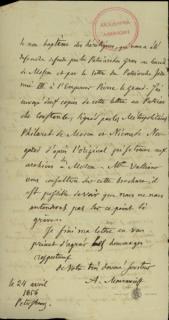 le non baptême des hérétiques, qui nous a été
par les Patriarches grecs au concile
de Moscou et par la lettre du Patriarche Jéré-
mie III à l'Empereur Pierre le grand. J'ai
envoyé deux copies de cette lettre au Patriar-
che de Constantinople, signées par les Métropolitains
Philarète de Moscou et Nicanor de Nov-
gorod d'après l'original qui se trouve aux
archives de Moscou. Mr
une sur cette brochure, il
est possible de voir que nous ne nous
entendrons pas sur ce point là
Je finis ma lettre en vous
priant d'agréer les hommages
respectueux
de Votre très dévoué serviteur
A. Mouravieff
le 24 avril
1856
Petersbourg